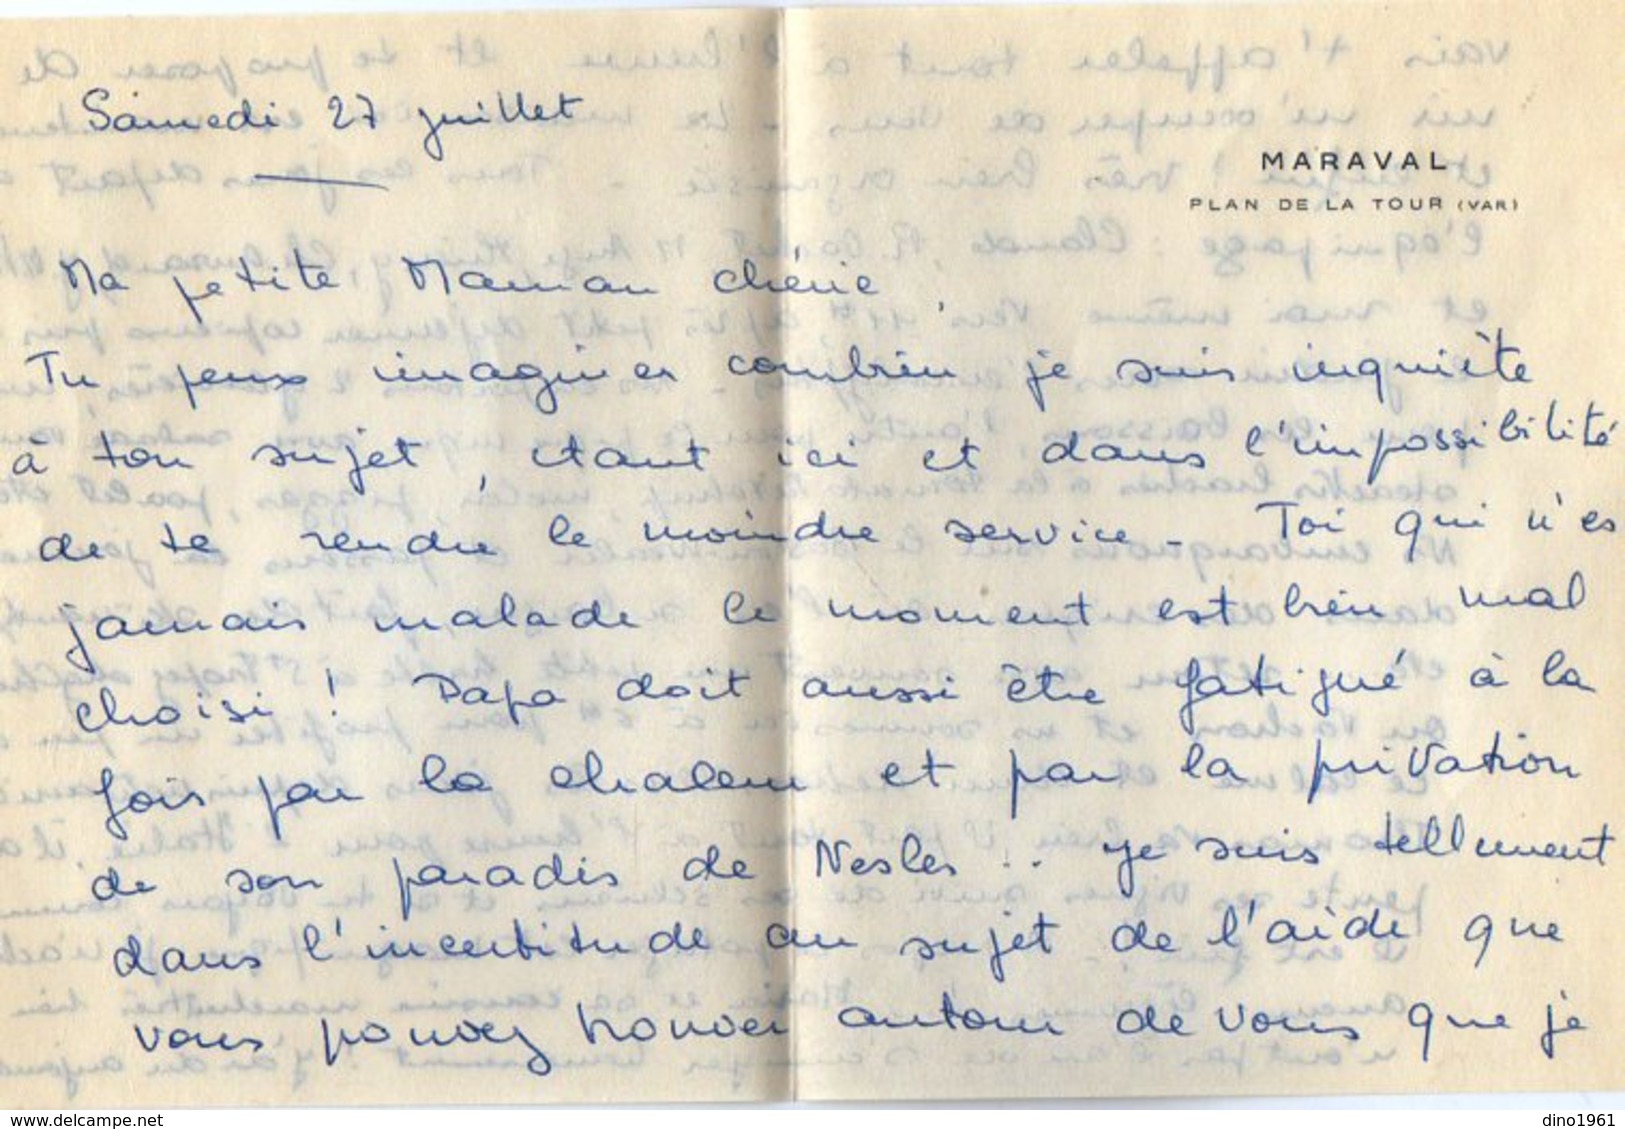 Samedi 27 juillet
MARAVAL
PLAN DE LA TOUR (VAR)
Ma petite Maman chérie,
Tu peux imaginer combien je suis inquiète
à ton sujet, étant ici et dans l'impossibilité
de te rendre le moindre service_ Toi qui n'es
jamais malade le moment est bien mal
choisi ! Papa doit aussi être fatigué à la
fois par la chaleur et par la privation
de son paradis de Nesles.. Je suis tellement
dans l'incertitude au sujet de l'aide que
vous pouvez trouver autour de vous que je
dino1961